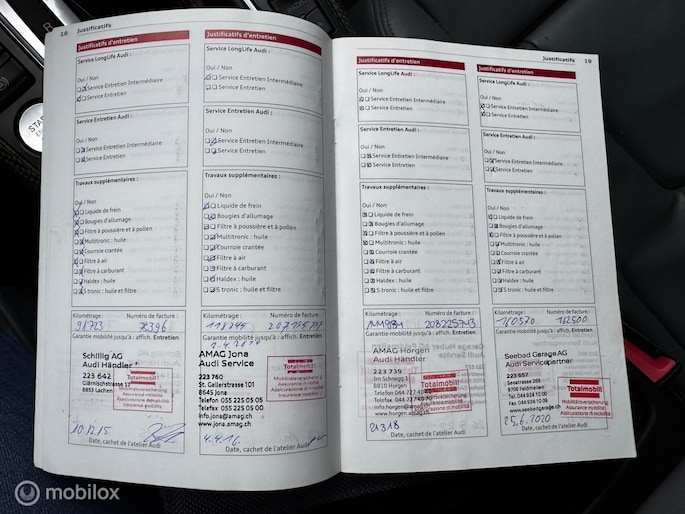 18 Justificatifs
Justificatifs d'entretien
Service LongLife Audi :
Oui / Non
Service Entretien Intermédiaire
Service Entretien
Service Entretien Audi :
Oui / Non
Service Entretien Intermédiaire
Service Entretien
Travaux supplémentaires :
Oui / Non
Liquide de frein
Bougies d'allumage
Filtre à poussière et à pollen
Multitronic : huile
Courroie crantée
Filtre à air
Filtre à carburant
Haldex : huile
S tronic : huile et filtre
Kilométrage : Numéro de facture :
Garantie mobilité jusqu'à : affich. Entretien
Schillig AG
Audi Händler
223 642
Glärnischstrasse
8853 Lachen
Totalmobil!
Mobilitätsversicherung
Assurance mobilité
Assicurazione di mobilità
Insurance mobility
10.12.15
Date, cachet de l'atelier Audi
Justificatifs d'entretien
Service LongLife Audi :
Oui / Non
Service Entretien Intermédiaire
Service Entretien
Service Entretien Audi :
Oui / Non
Service Entretien Intermédiaire
Service Entretien
Travaux supplémentaires :
Oui / Non
Liquide de frein
Bougies d'allumage
Filtre à poussière et à pollen
Multitronic : huile
Courroie crantée
Filtre à air
Filtre à carburant
Haldex : huile
S tronic : huile et filtre
Kilométrage : Numéro de facture :
Garantie mobilité jusqu'à : affich. Entretien
AMAG Jona
Audi Service
223 760
St. Gallerstrasse 101
8645 Jona
Telefon 055 225 05 05
Telefax 055 225 05 00
info.jona@amag.ch
www.jona.amag.ch
4.4.16
Date, cachet de l'atelier Audi
Justificatifs 19
Justificatifs d'entretien
Service LongLife Audi :
Oui / Non
Service Entretien Intermédiaire
Service Entretien
Service Entretien Audi :
Oui / Non
Service Entretien Intermédiaire
Service Entretien
Travaux supplémentaires :
Oui / Non
Liquide de frein
Bougies d'allumage
Filtre à poussière et à pollen
Multitronic : huile
Courroie crantée
Filtre à air
Filtre à carburant
Haldex : huile
S tronic : huile et filtre
Kilométrage : Numéro de facture :
Garantie mobilité jusqu'à : affich. Entretien
AMAG Horgen
Audi Händler
223 739
8810 Horgen
Totalmobil!
Mobilitätsversicherung
Assurance mobilité
Date, cachet de l'atelier Audi
Justificatifs d'entretien
Service LongLife Audi :
Oui / Non
Service Entretien Intermédiaire
Service Entretien
Service Entretien Audi :
Oui / Non
Service Entretien Intermédiaire
Service Entretien
Travaux supplémentaires :
Oui / Non
Liquide de frein
Bougies d'allumage
Filtre à poussière et à pollen
Multitronic : huile
Courroie crantée
Filtre à air
Filtre à carburant
Haldex : huile
S tronic : huile et filtre
Kilométrage : Numéro de facture :
160570
Garantie mobilité jusqu'à : affich. Entretien
Seebad Garage AG
Audi Servicepartner
223 657
Seestrasse
Tel. 044 924 10 00
Totalmobil!
Mobilitätsversicherung
Assurance mobilité
25.6.2020
Date, cachet de l'atelier Audi
START
R
mobilox